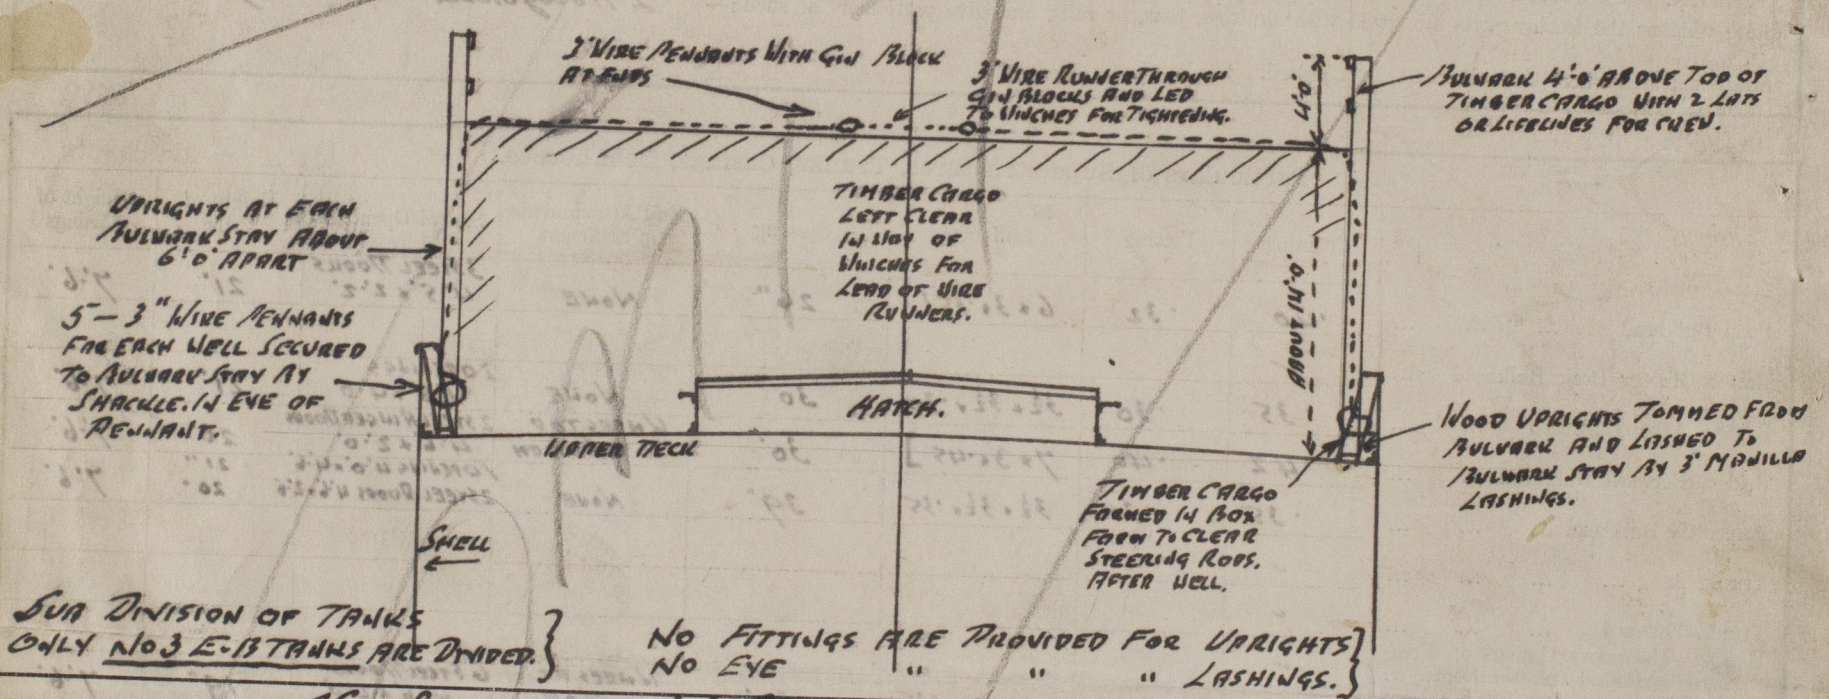 3" WIRE PENNANTS WITH GIN BLOCK
AT ENDS
3" WIRE RUNNER THROUGH
GIN BLOCKS AND LED
TO WINCHES FOR TIGHTENING.
4'0"
BULWARK 4'-0" ABOVE TOP OF
TIMBER CARGO WITH 2 LATS
OR LIFELINES FOR CREW.
UPRIGHTS AT EACH
BULWARK STAY ABOUT
6'0" APART
TIMBER CARGO
LEFT CLEAR
IN WAY OF
WINCHES FOR
LEAD OF WIRE
RUNNERS.
ABOUT 14'0"
5 - 3" WIRE PENNANTS
FOR EACH WELL SECURED
TO BULWARK STAY BY
SHACKLE. IN EYE OF
PENNANT.
HATCH.
UPPER DECK
WOOD UPRIGHTS TOMMED FROM
BULWARK AND LASHED TO
BULWARK STAY BY 3" MANILLA
LASHINGS.
TIMBER CARGO
FORMED IN BOX
FORM TO CLEAR
STEERING RODS.
AFTER WELL.
SHELL
SUB DIVISION OF TANKS
ONLY NO 3 E-B TANKS ARE DIVIDED.
NO FITTINGS ARE PROVIDED FOR UPRIGHTS
NO EYE " " " LASHINGS.